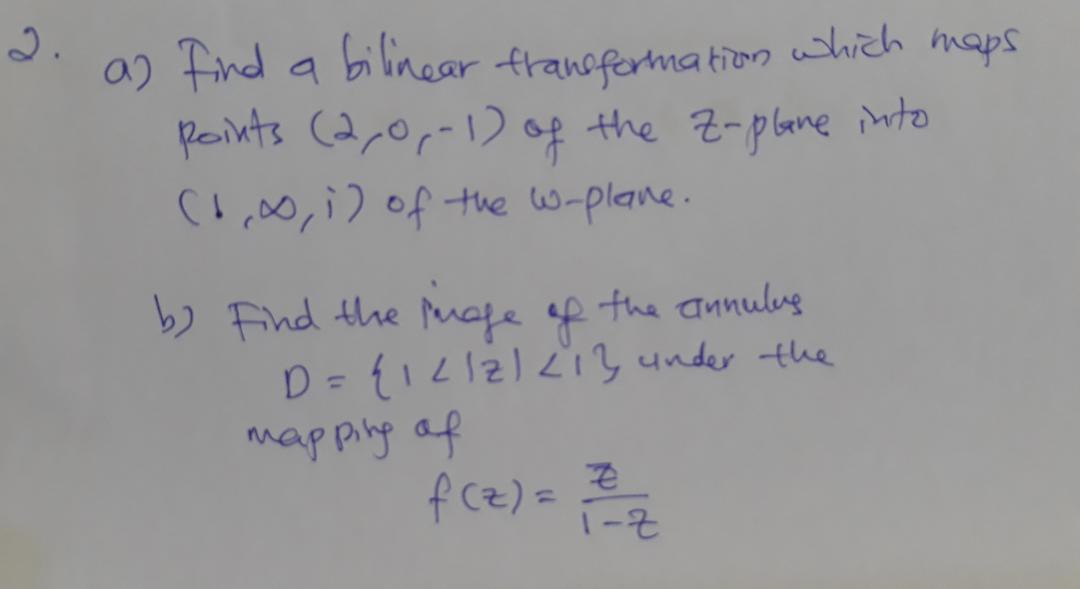 2. a) Find a bilinear transformation which maps
points (2,0,-1) of the z-plane into
(1,∞,i) of the w-plane.
b) Find the image of the annulus
D = {1<|z|<1} under the
mapping of
f(z) = z/(1-z)